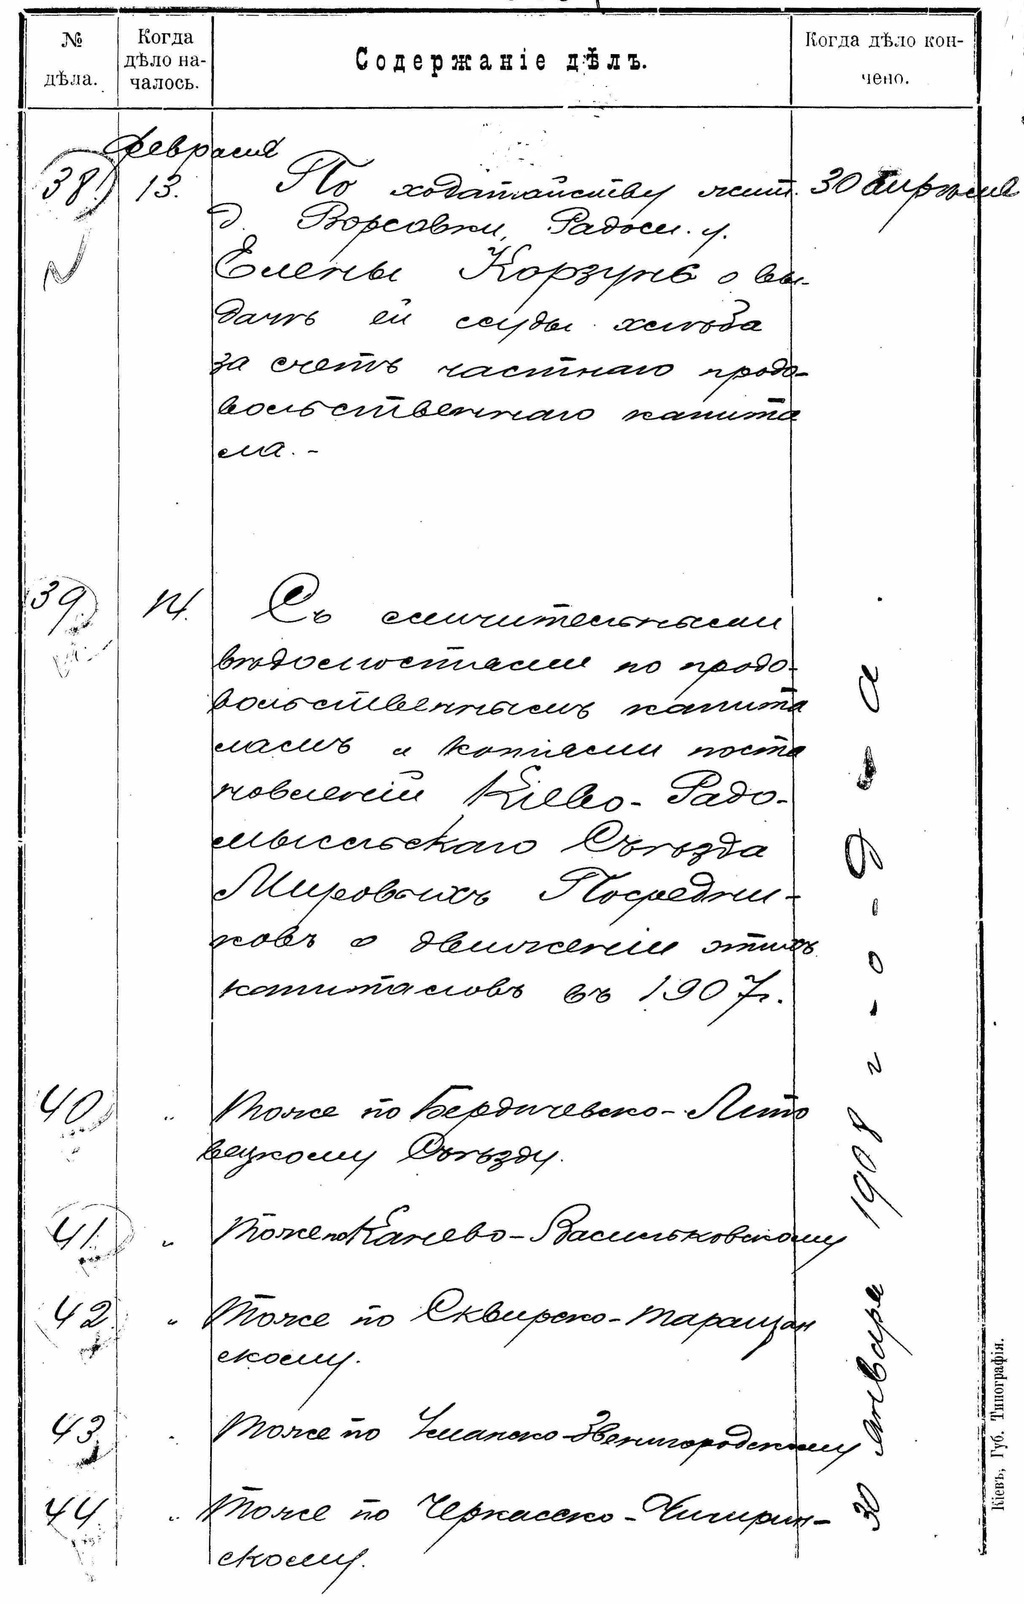 № дѣла.
Когда дѣло началось.
Содержаніе дѣлъ.
Когда дѣло кончено.
февраля
38. 13. По ходатайству жит. 30 апрѣля
д. Ворсовки, Радом. у.
Елены Корзунъ о вы-
дачѣ ей ссуды хлѣба
за счетъ частнаго продо-
вольственнаго капита
ла. -
39. 14. Съ сличительными
вѣдомостями по продо-
вольственнымъ капита
ламъ и копіями поста
новленій Кіево-Радо-
мысльскаго Съѣзда
Мировыхъ Посредни-
ковъ о движеніи этихъ
капиталовъ въ 1907 г.
40 " Тоже по Бердичевско-Липо
вецкому Съѣзду.
41. " Тоже по Канево-Васильковскому
42. " Тоже по Сквирско-Таращан
скому.
43. " Тоже по Уманско-Звенигородскому
44. " Тоже по Черкасско-Чигирин-
скому.
30 января 1908 г-о-д-а
Кіевъ, Губ. Типографія.